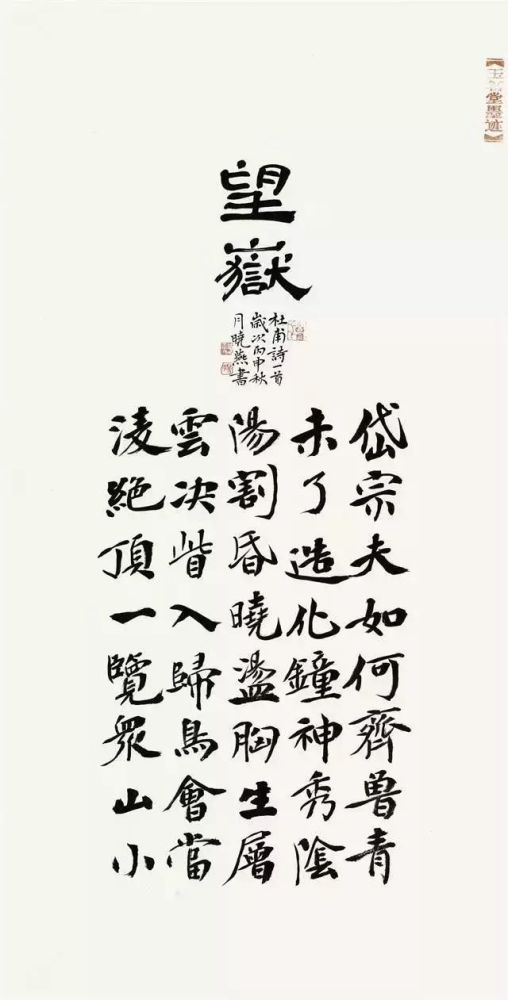 望
嶽
杜甫詩一首
歲次丙申秋
月曉燕書
岱宗夫如何齊魯青
未了造化鐘神秀陰
陽割昏曉盪胸生層
雲決眥入歸鳥會當
淩絕頂一覽眾山小
堂墨迹